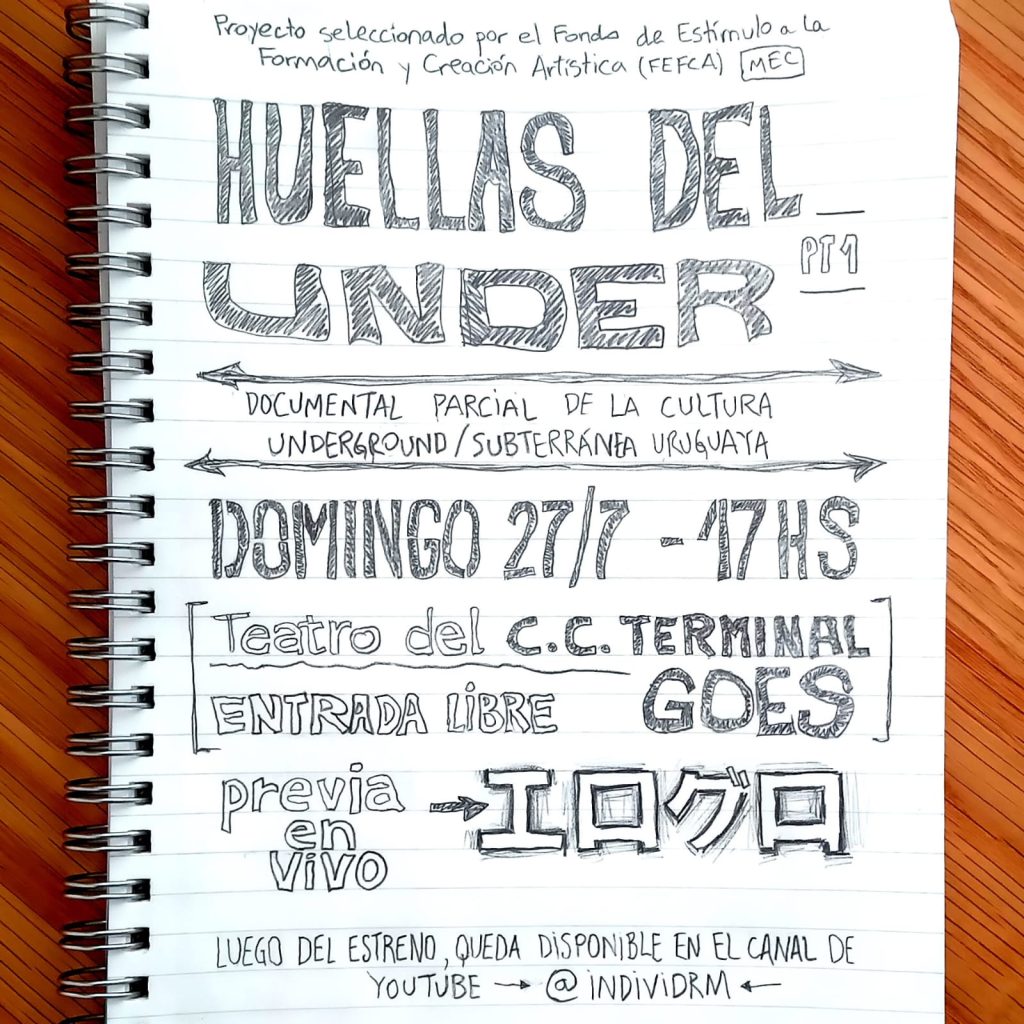 Proyecto seleccionado por el Fondo de Estímulo a la
Formación y Creación Artística (FEFCA) MEC
HUELLAS DEL
UNDER
PT1
DOCUMENTAL PARCIAL DE LA CULTURA
UNDERGROUND/SUBTERRÁNEA URUGUAYA
DOMINGO 27/7 - 17HS
Teatro del C.C. TERMINAL
ENTRADA LIBRE GOES
previa
en
vivo
→ エログロ
LUEGO DEL ESTRENO, QUEDA DISPONIBLE EN EL CANAL DE
YOUTUBE → @INDIVIDRM ←